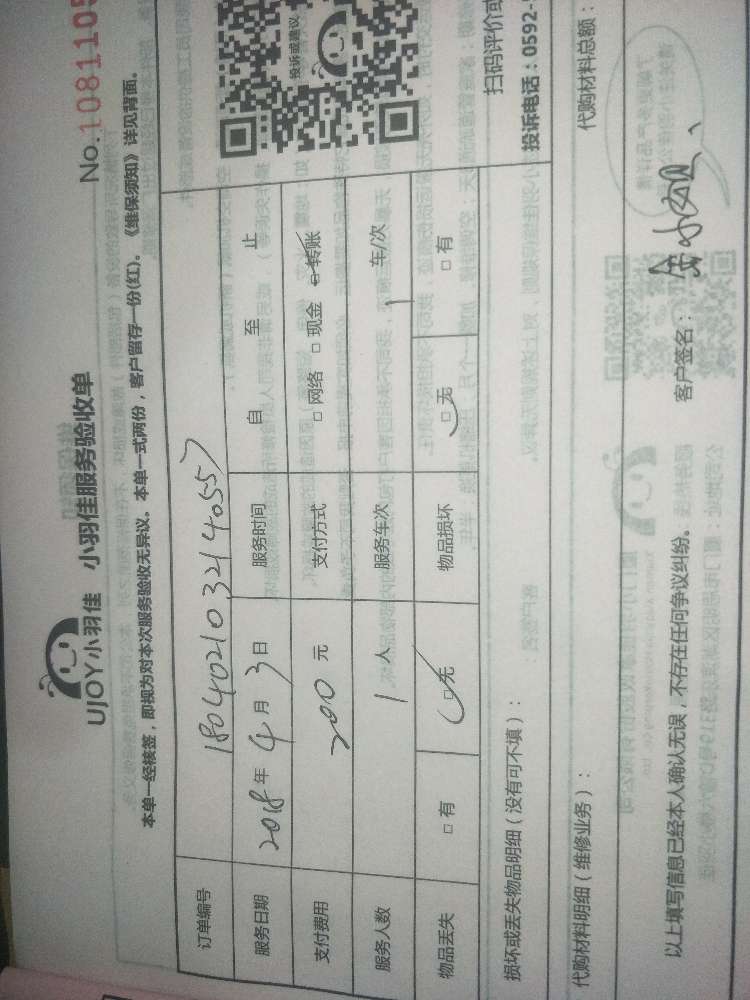 UJOY小羽佳 小羽佳服务验收单
No.1081105
本单一经核签，即视为对本次服务验收无异议。本单一式两份，客户留存一份(红)。《维保须知》详见背面。
订单编号 1804021032140557
服务日期 2018年4月3日 服务时间 自 至 止
支付费用 200元 支付方式 □网络 □现金 □转账
服务人数 1人 服务车次 1 车/次
物品丢失 □有 □无 物品损坏 □无 □有
投诉或建议
扫码评价或
投诉电话：0592-
损坏或丢失物品明细（没有可不填）：
代购材料明细（维修业务）： 代购材料总额：
以上填写信息已经本人确认无误，不存在任何争议纠纷。 客户签名：